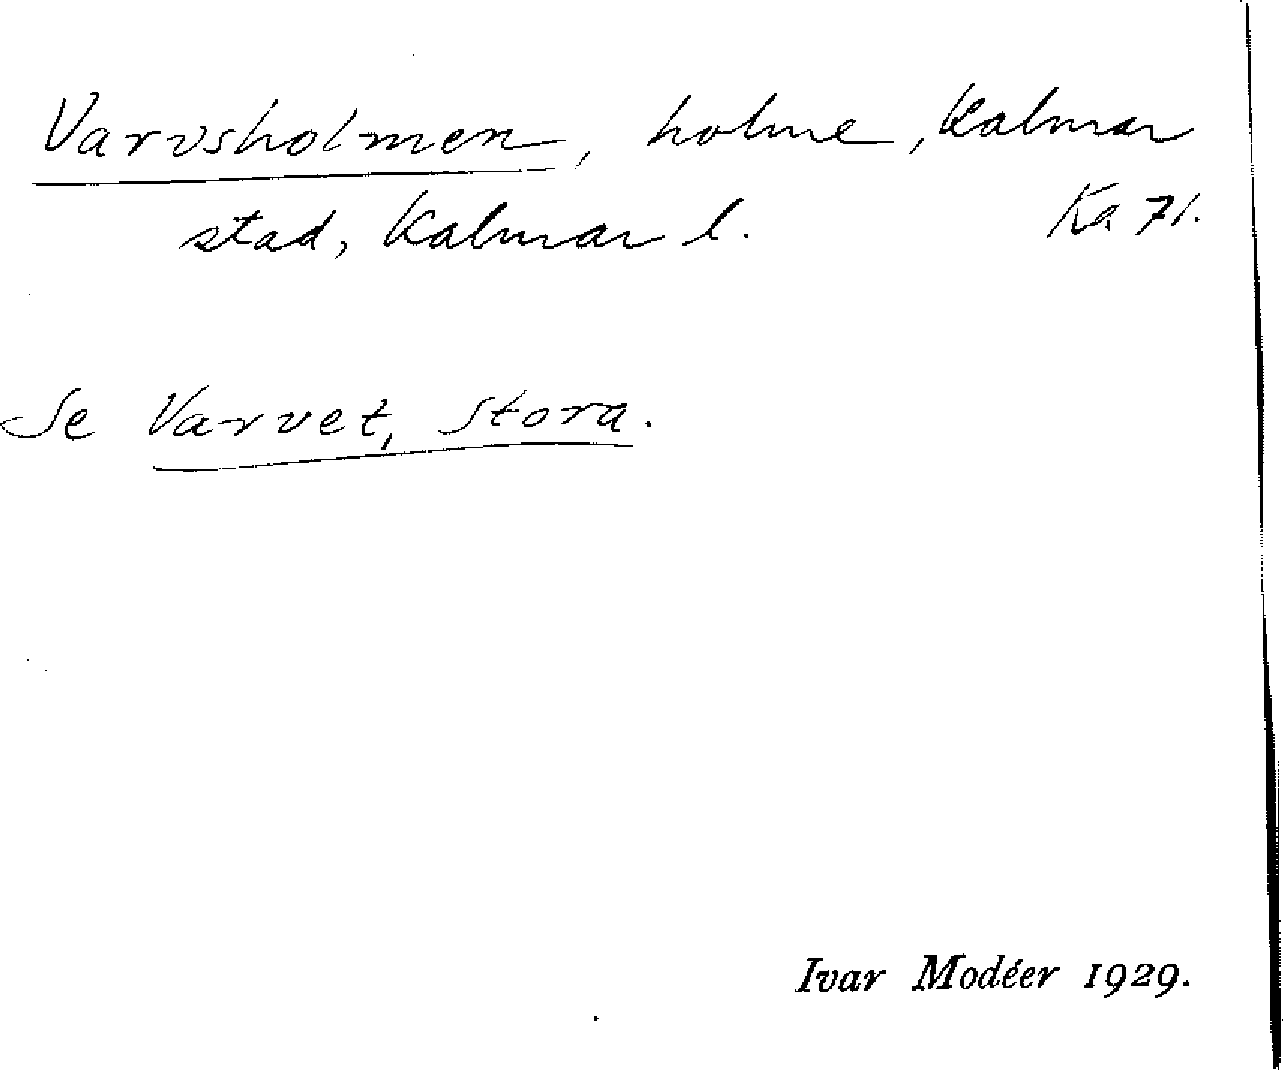 Varvsholmen, holme, Kalmar
stad, Kalmar l. Ka 71.
Se Varvet, Stora.
Ivar Modéer 1929.